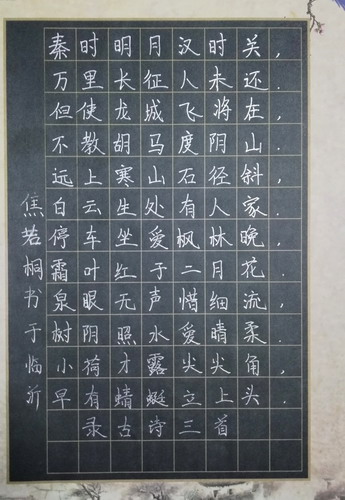 秦时明月汉时关，
万里长征人未还．
但使龙城飞将在，
不教胡马度阴山．
远上寒山石径斜，
白云生处有人家．
停车坐爱枫林晚，
霜叶红于二月花．
泉眼无声惜细流，
树阴照水爱晴柔．
小荷才露尖尖角，
早有蜻蜓立上头．
录古诗三首
焦若桐书于临沂